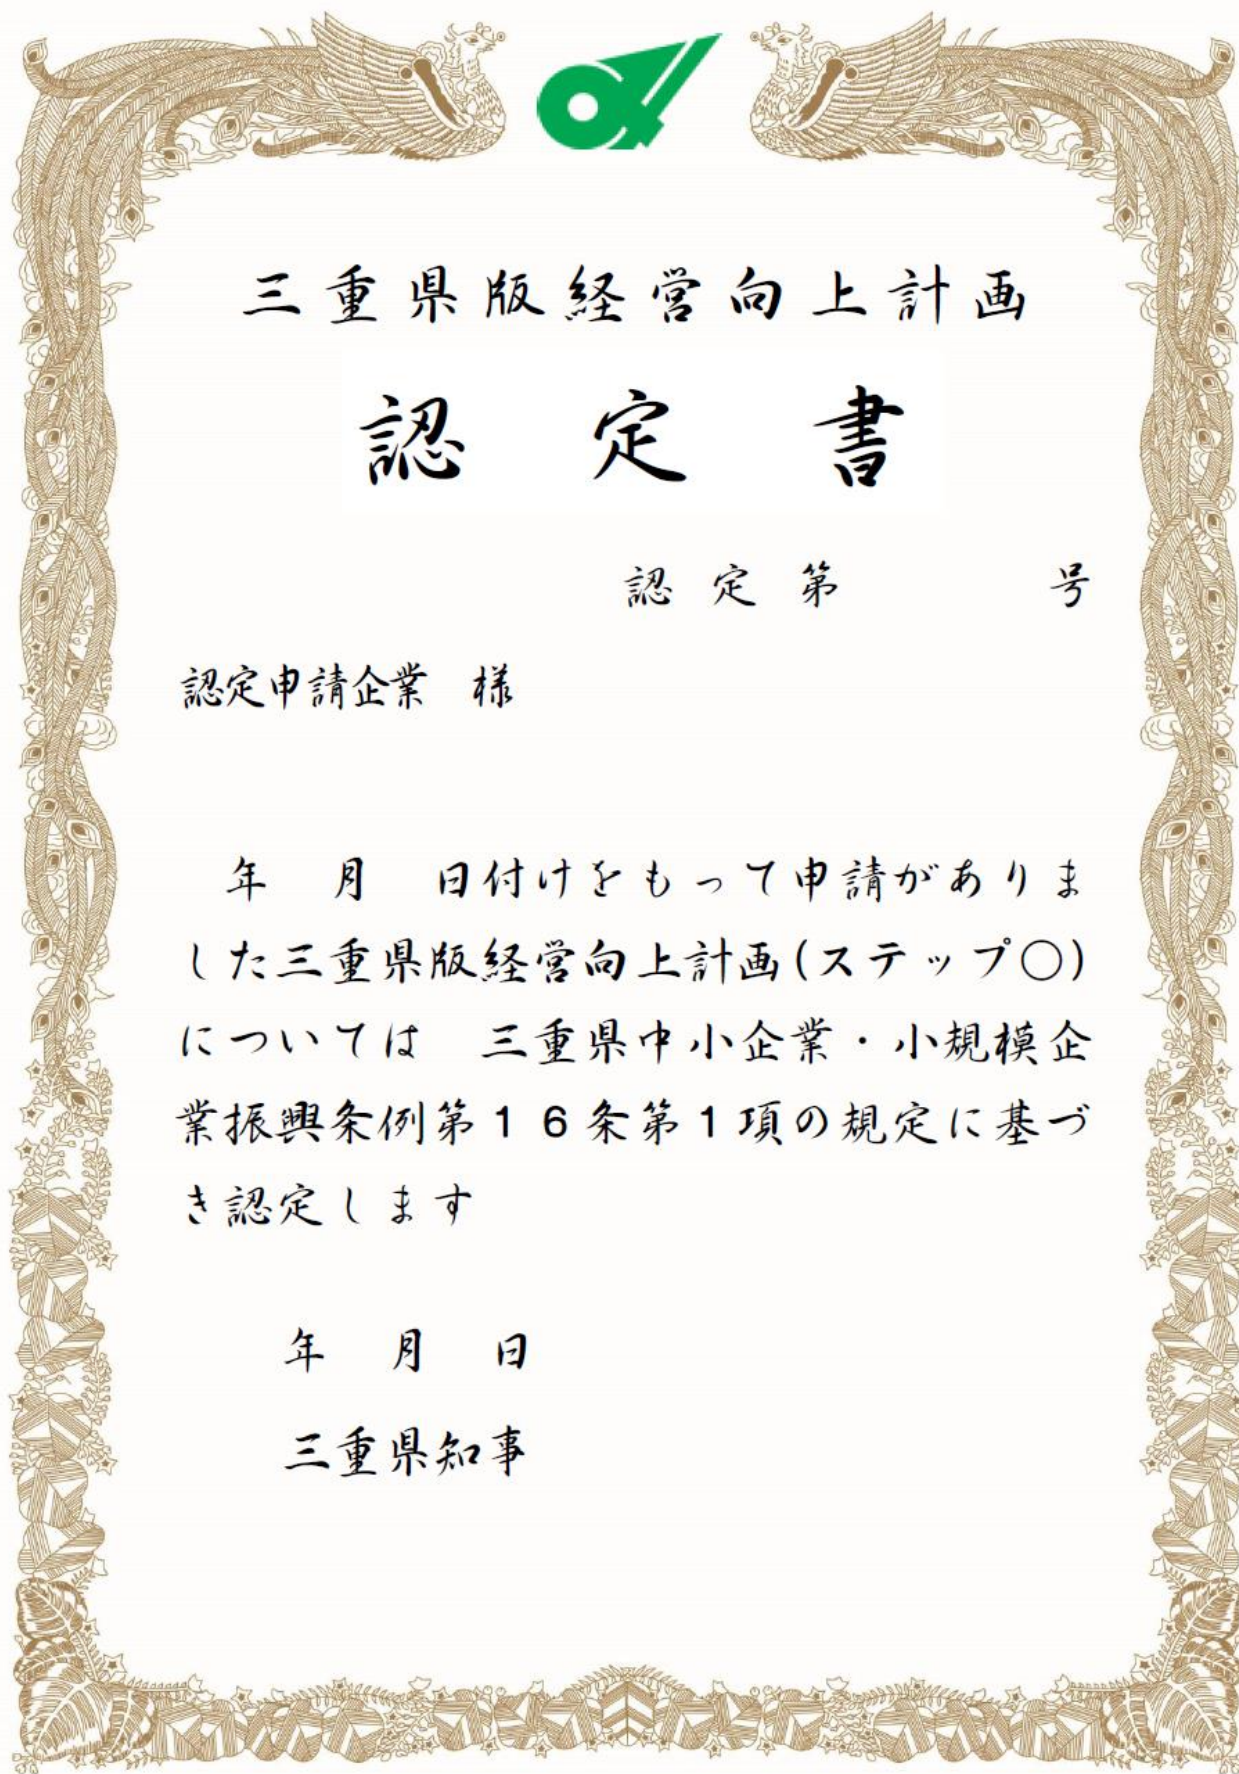 三重県版経営向上計画
認 定 書
認 定 第　　　号
認定申請企業　様
年　月　日付けをもって申請がありま
した三重県版経営向上計画(ステップ〇)
については　三重県中小企業・小規模企
業振興条例第１６条第１項の規定に基づ
き認定します
年　月　日
三重県知事